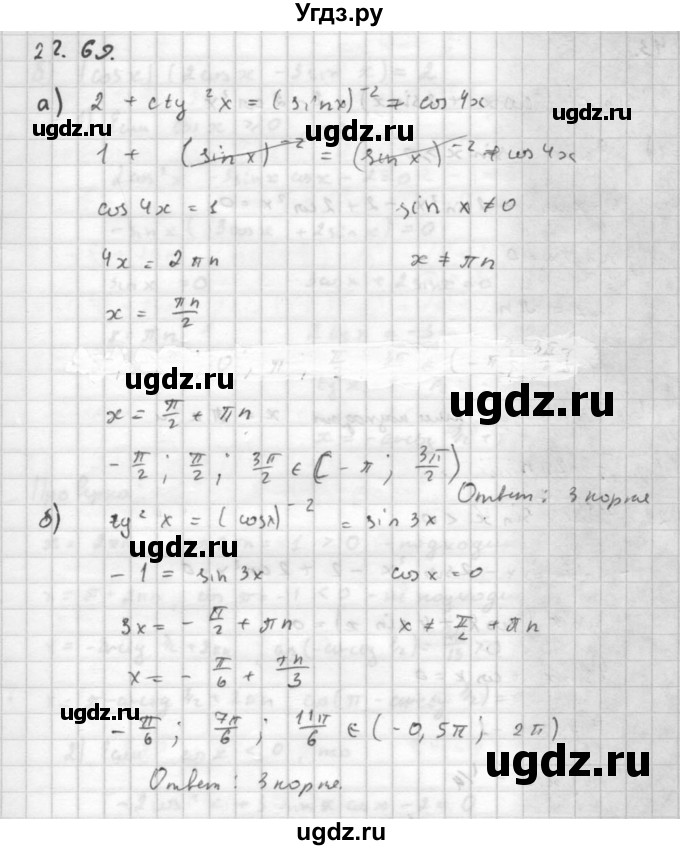 Угдз.ру
22.69.
а) 2 + ctg²x = (sin x)⁻² + cos 4x
ugdz.ru ugdz.ru
1 + (sin x)⁻² = (sin x)⁻² + cos 4x
cos 4x = 1 sin x ≠ 0
4x = 2πn x ≠ πn
x = πn/2
ugdz.ru
x = π/2 + πn
ugdz.ru
-π/2 ; π/2 ; 3π/2 ∈ (-π ; 3π/2)
ugdz.ru
Ответ: 3 корня
б) tg²x = (cos x)⁻² = sin 3x
ugdz.ru
-1 = sin 3x cos x = 0
3x = -π/2 + πn x ≠ π/2 + πn
x = -π/6 + πn/3
ugdz.ru
-π/6 ; 7π/6 ; 11π/6 ∈ (-0,5π ; 2π)
ugdz.ru
Ответ: 3 корня.
ugdz.ru